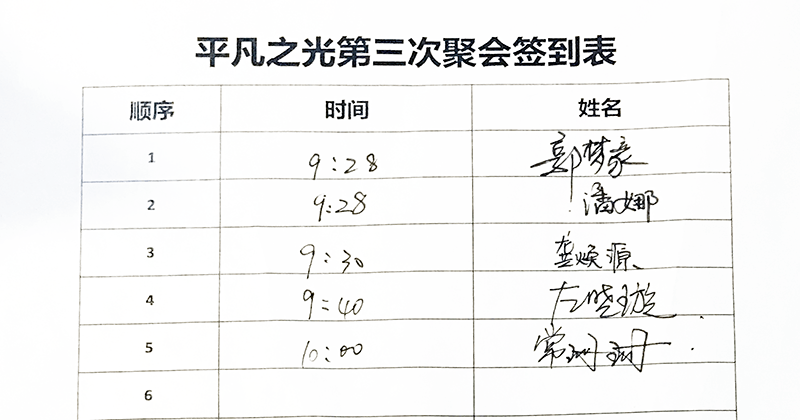 平凡之光第三次聚会签到表
顺序 时间 姓名
1 9:28 郭梦豪
2 9:28 潘娜
3 9:30 龚焕源
4 9:40 左晓璇
5 10:00 常珊珊
6